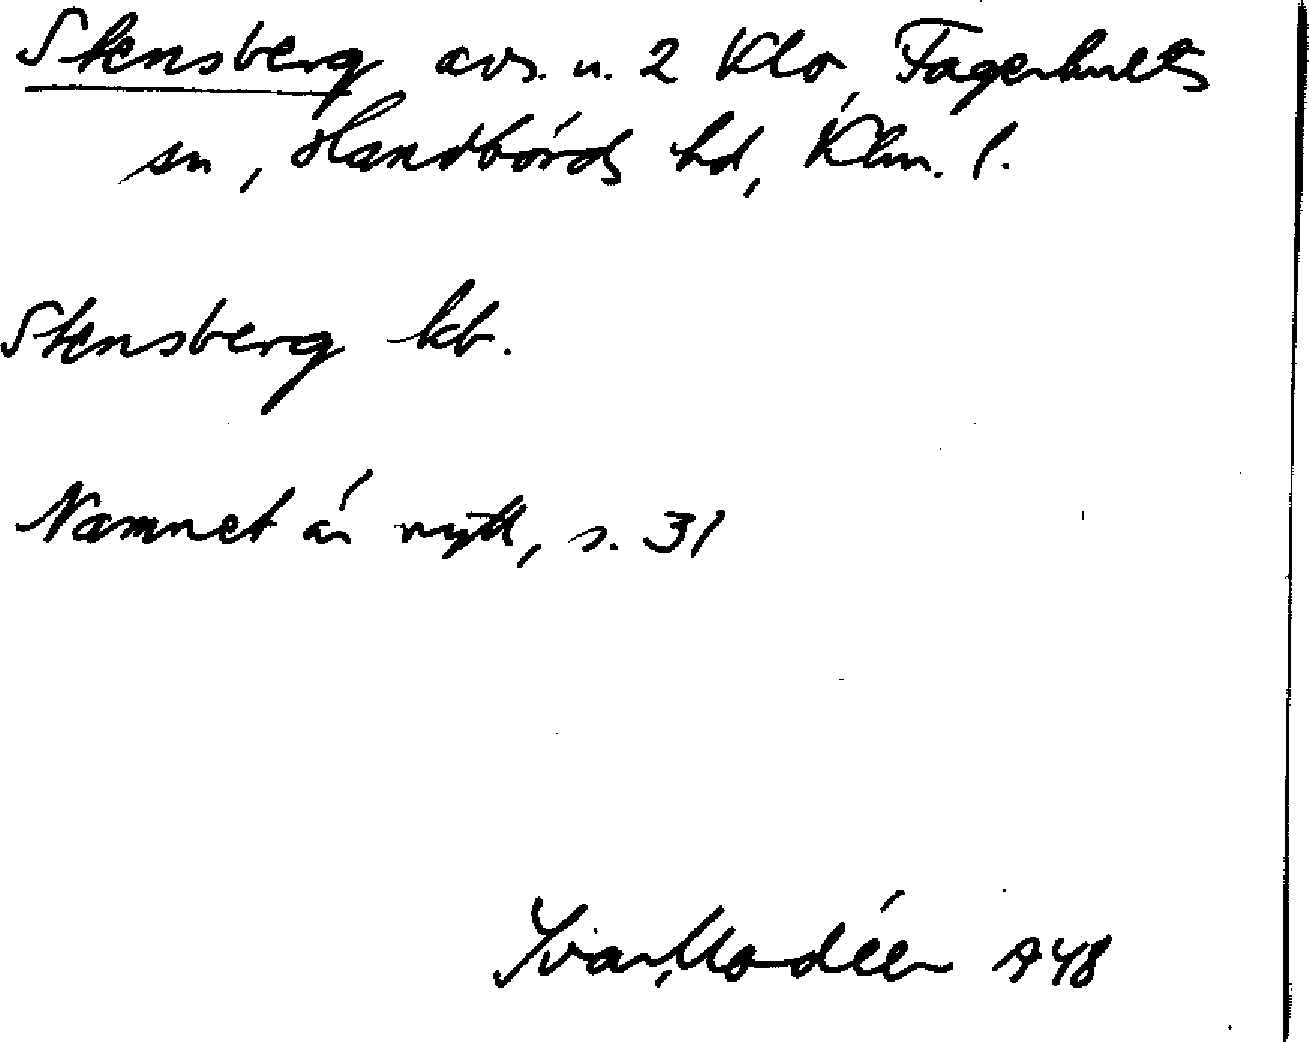 Stensberg avs. u. 2 Klo, Fagerhults
sn, Handbörds hd, Klm. l.
Stensberg kb.
Namnet är nytt, s. 31
Ivar Modéer 1948